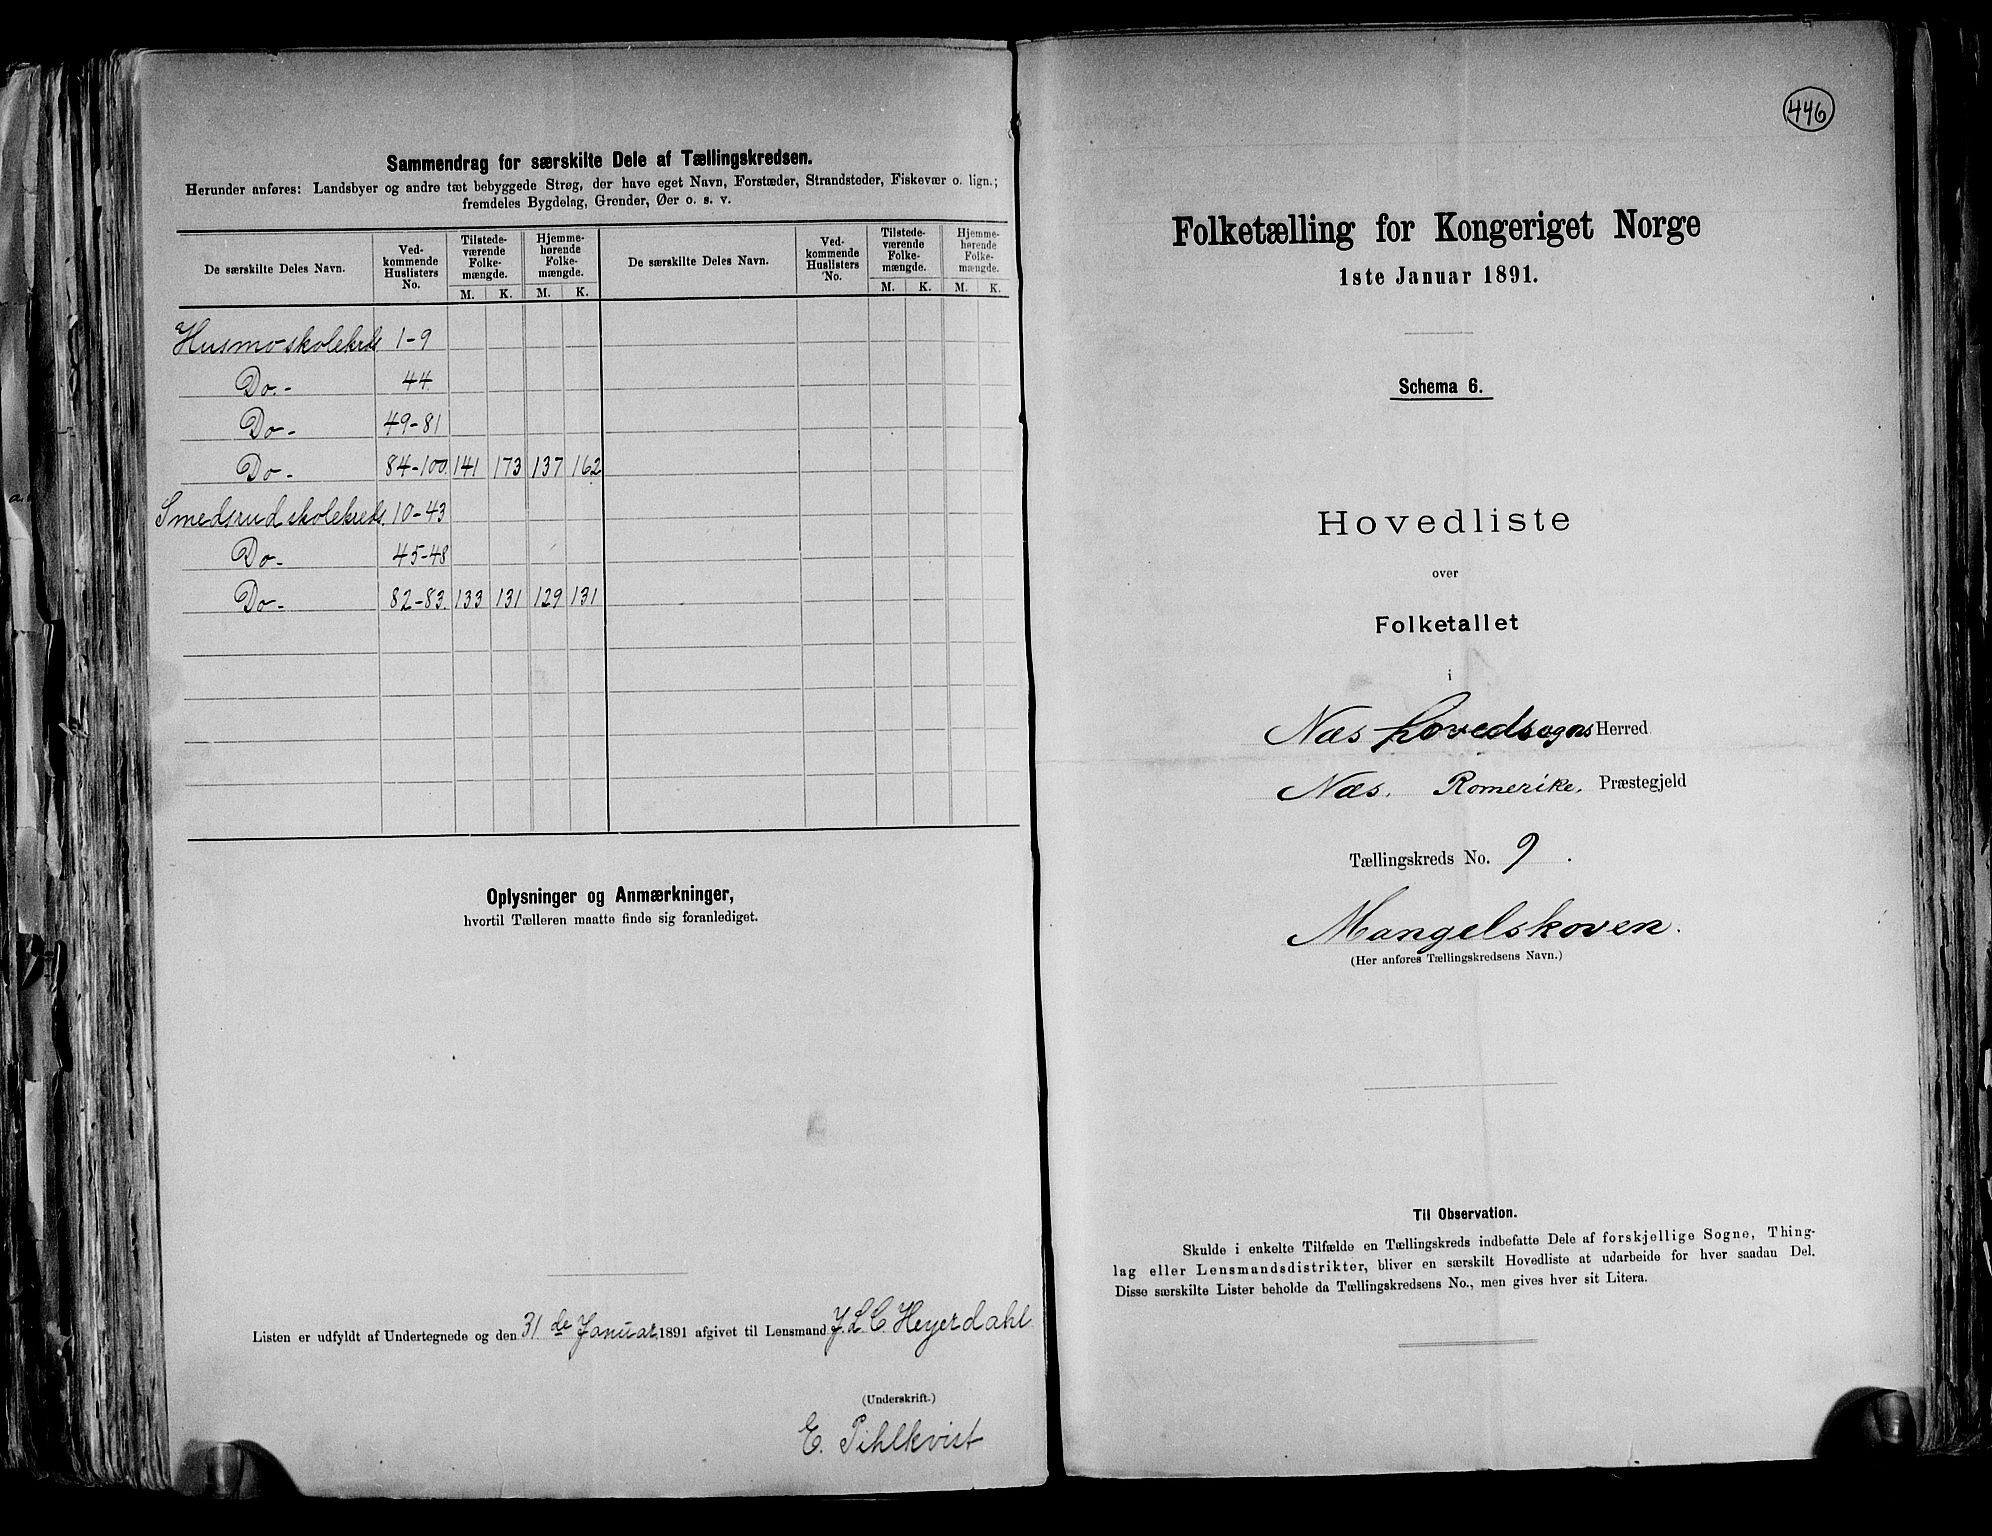 Sammendrag for særskilte Dele af Tællingskredsen.
Herunder anføres: Landsbyer og andre tæt bebyggede Strøg, der have eget Navn, Forstæder, Strandsteder, Fiskevær o. lign.;
fremdeles Bygdelag, Grender, Øer o. s. v.
De særskilte Deles Navn. Ved-kommende Huslisters No. Tilstede-værende Folke-mængde. Hjemme-hørende Folke-mængde. De særskilte Deles Navn. Ved-kommende Huslisters No. Tilstede-værende Folke-mængde. Hjemme-hørende Folke-mængde.
M. K. M. K. M. K. M. K.
Husmo skolekrds. 1-9
Do.- 44.
Do- 49-81
Do- 84-100. 141 173 137 162
Smedsrud skolekreds. 10-43
Do- 45-48
Do- 82-83. 133 131 129 131
Oplysninger og Anmærkninger,
hvortil Tælleren maatte finde sig foranlediget.
Listen er udfyldt af Undertegnede og den 31 de Januar 1891 afgivet til Lensmand J. L. C. Heyerdahl
(Underskrift.)
E. Pihlkvist
446
Folketælling for Kongeriget Norge
1ste Januar 1891.
Schema 6.
Hovedliste
over
Folketallet
i
Næs hovedsogns Herred
Næs. Romerike. Præstegjeld
Tællingskreds No. 9.
Mangelskoven.
(Her anføres Tællingskredsens Navn.)
Til Observation.
Skulde i enkelte Tilfælde en Tællingskreds indbefatte Dele af forskjellige Sogne, Thing-
lag eller Lensmandsdistrikter, bliver en særskilt Hovedliste at udarbeide for hver saadan Del.
Disse særskilte Lister beholde da Tællingskredsens No., men gives hver sit Litera.